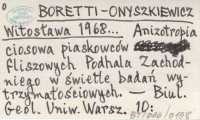 BORETTI-ONYSZKIEWICZ
Witosława 1968... Anizotropia
ciosowa piaskowców
fliszowych Podhala Zachod-
niego w świetle badań wy-
trzymałościowych. — Biul.
Geol. Uniw. Warsz. 10: